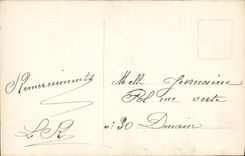 Remerciements
L R
Melle Germaine
Pol rue verte
n: 30 Denain